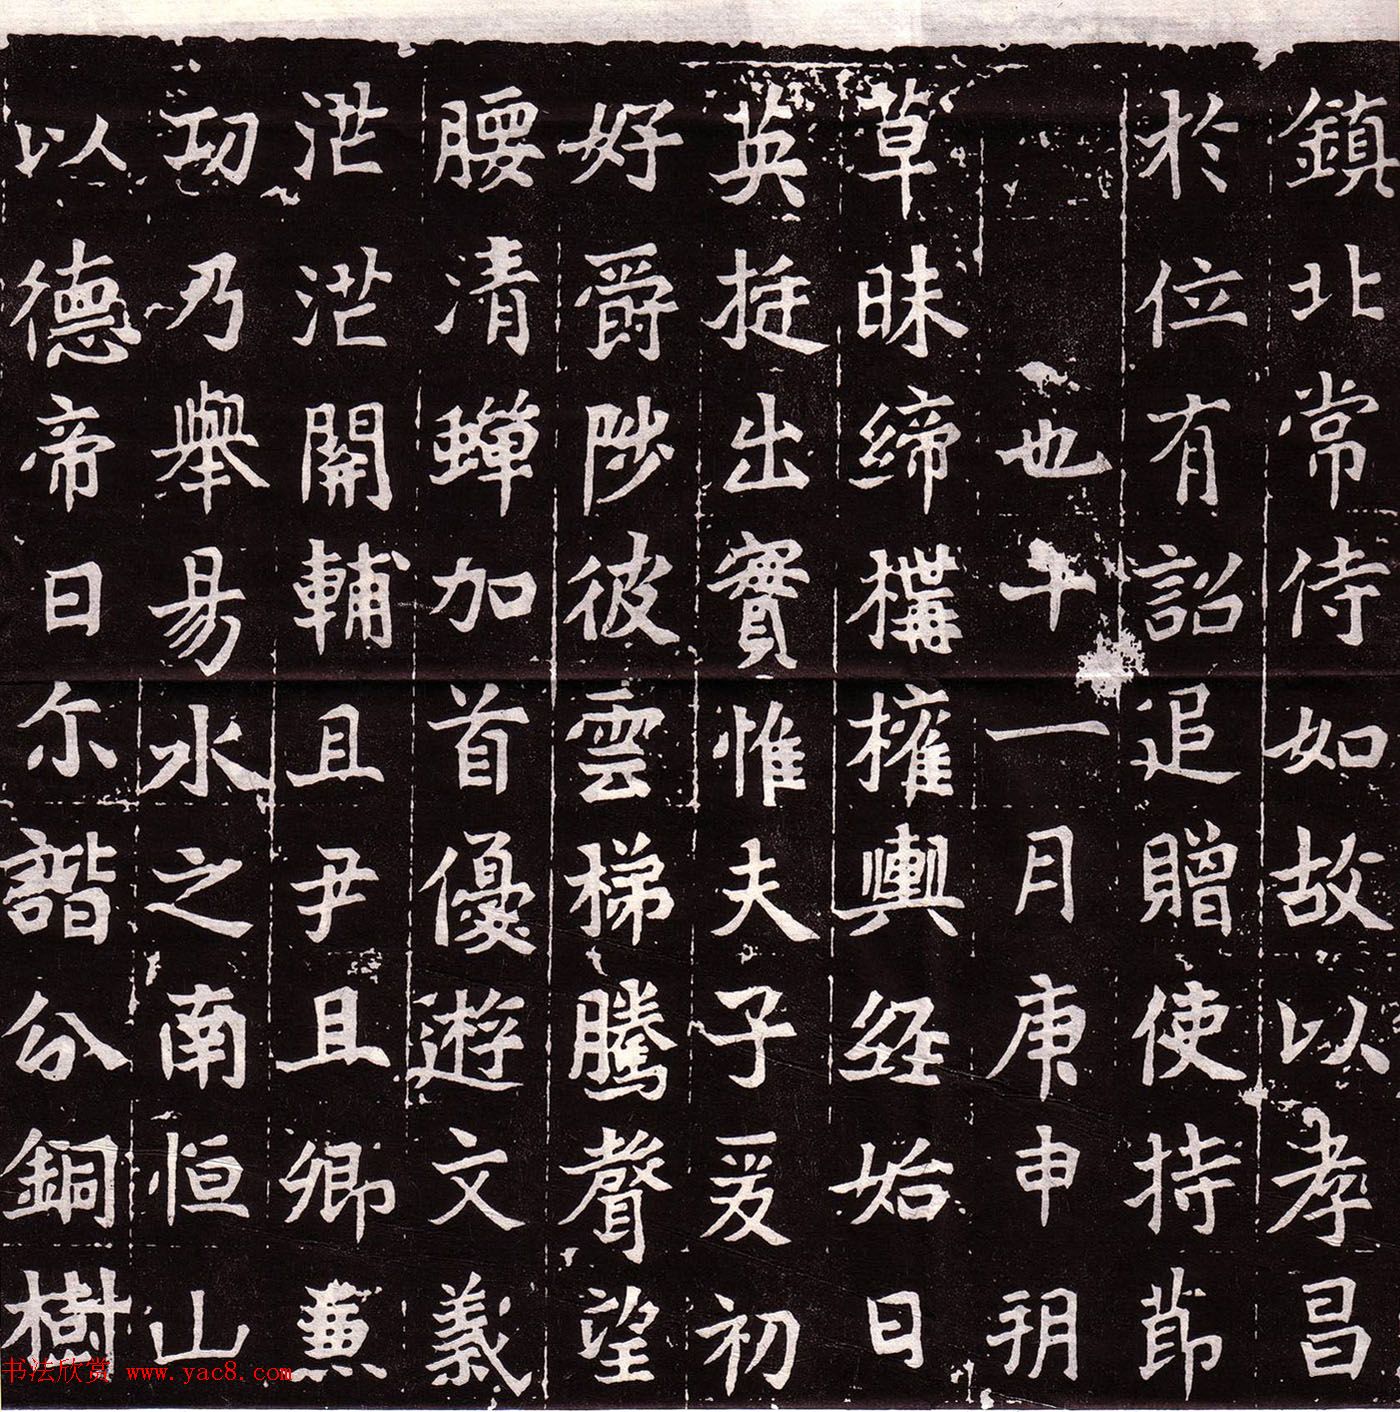 鎮北常侍如故以孝昌
於位有詔追贈使持節
也十一月庚申朔
草昧締構權輿經始日
英挺出實惟夫子爰初
好爵陟彼雲梯騰聲望
腰清蟬加首優遊文義
茫茫開輔且尹且卿兼
功乃舉易水之南恒山
以德帝曰尓諧分銅樹
书法欣赏 www.yac8.com